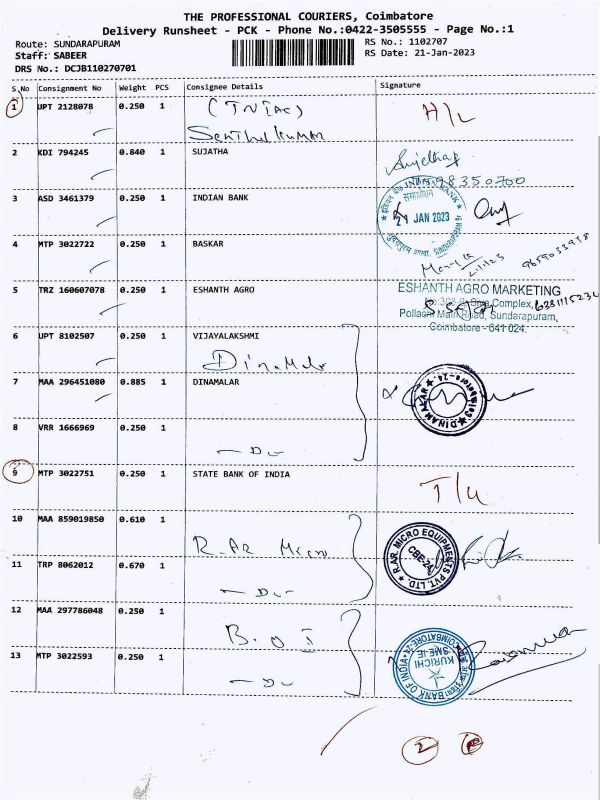 THE PROFESSIONAL COURIERS, Coimbatore
Delivery Runsheet - PCK - Phone No.:0422-3505555 - Page No.:1
Route: SUNDARAPURAM
RS No.: 1102707
Staff: SABEER
RS Date: 21-Jan-2023
DRS No.: DCJB110270701
S.No Consignment No Weight PCS Consignee Details Signature
1 UPT 2128078 0.250 1 H/L
Senthil Kumar
2 KDI 794245 0.840 1 SUJATHA
3 ASD 3461379 0.250 1 INDIAN BANK
INDIAN BANK
21 JAN 2023
SUNDARAPURAM
4 MTP 3022722 0.250 1 BASKAR
5 TRZ 160607078 0.250 1 ESHANTH AGRO
ESHANTH AGRO MARKETING
Complex,
Pollachi Main Road, Sundarapuram,
Coimbatore - 641 024.
6 UPT 8102507 0.250 1 VIJAYALAKSHMI
7 MAA 296451080 0.885 1 DINAMALAR
DINAMALAR
Coimbatore-24.
8 VRR 1666969 0.250 1
9 MTP 3022751 0.250 1 STATE BANK OF INDIA
10 MAA 859019850 0.610 1 R.AR Micro
R.AR. MICRO EQUIPMENTS PVT. LTD.
CBE-24
11 TRP 8062012 0.670 1
12 MAA 297786048 0.250 1 B.O I
BANK OF INDIA
KURICHI
COIMBATORE-24
13 MTP 3022593 0.250 1
2